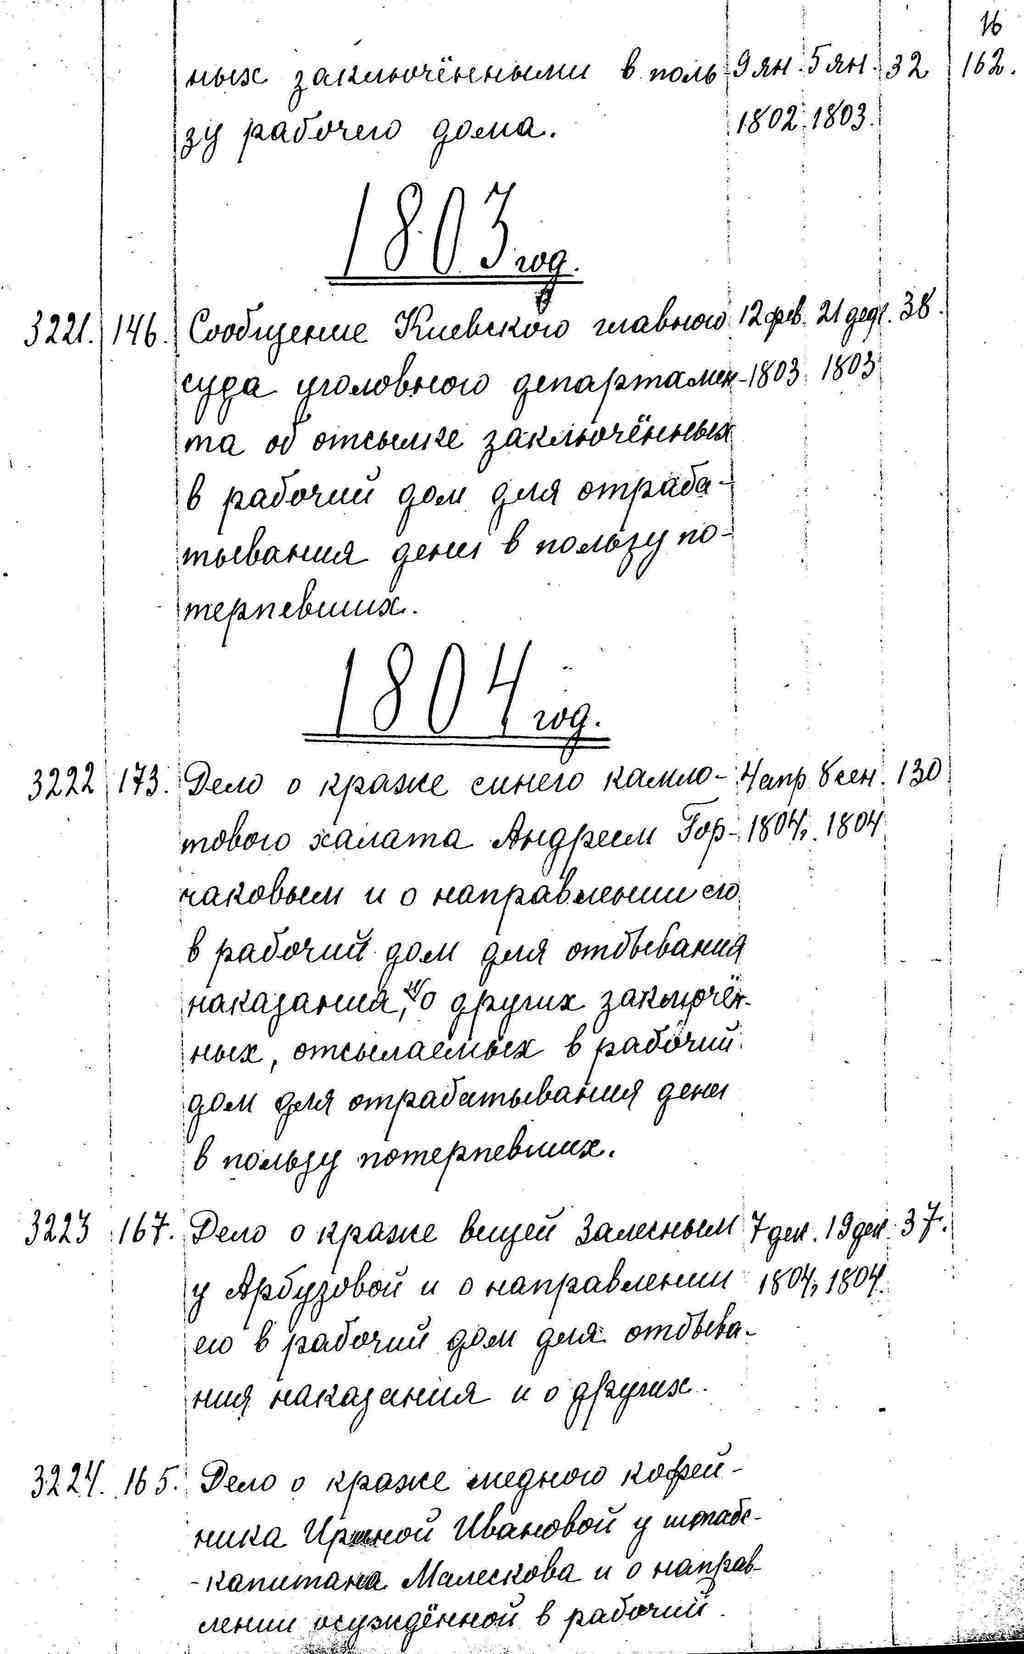 16
ных заключёнными в поль- 9 ян. 5 ян. 32 162.
зу рабочего дома. 1802. 1803.
1803 год.
3221. 146. Сообщение Киевского главного 12 фев. 21 дек. 38.
суда уголовного департамен- 1803 1803
та об отсылке заключённых
в рабочий дом для отраба-
тывания денег в пользу по-
терпевших.
1804 год.
3222 173. Дело о краже синего камло- 4 апр 8 сен. 130
тового халата Андреем Гор- 1804. 1804
чаковым и о направлении его
в рабочий дом для отбывания
наказания, и о других заключён-
ных, отсылаемых в рабочий
дом для отрабатывания денег
в пользу потерпевших.
3223 167. Дело о краже вещей Залесным 7 дек. 19 дек. 37.
у Арбузовой и о направлении 1804, 1804
его в рабочий дом для отбыва-
ния наказания и о других.
3224. 165. Дело о краже медного кофей-
ника Ириной Ивановой у штабс-
-капитана Малескова и о направ-
лении осуждённой в рабочий